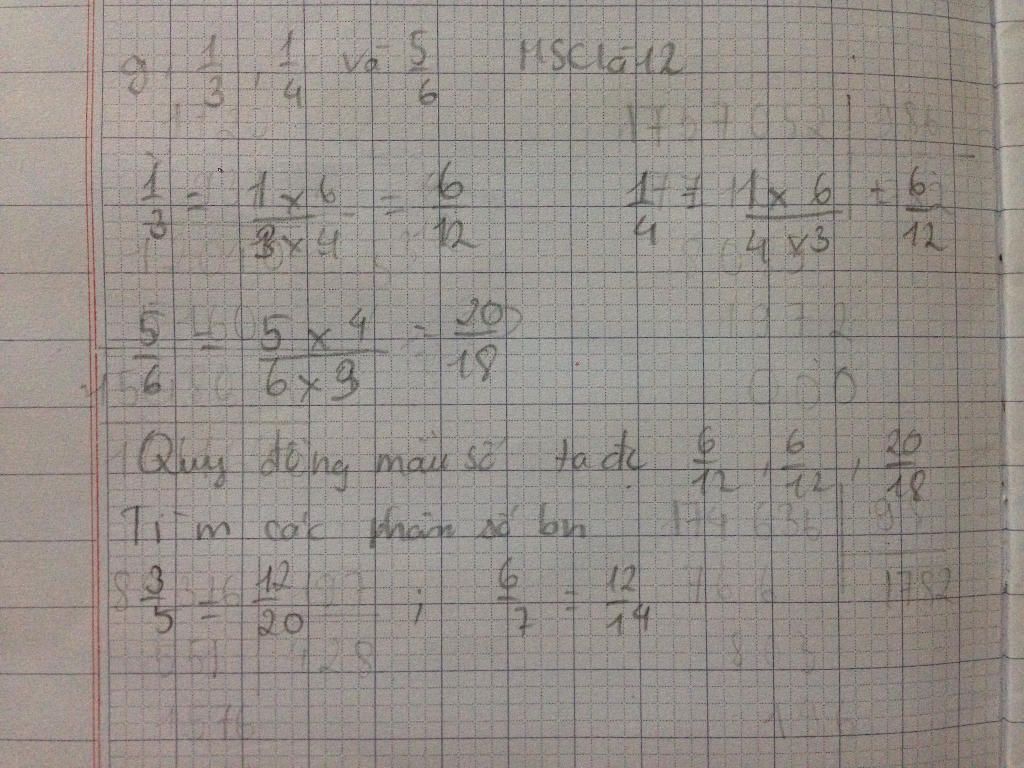 g, 1/3, 1/4 và 5/6 MSC là 12
1/3 = 1 x 6 / 3 x 4 = 6/12 1/4 = 1 x 6 / 4 x 3 = 6/12
5/6 = 5 x 4 / 6 x 3 = 20/18
Quy đồng mẫu số ta đc 6/12, 6/12, 20/18
Tìm các phân số bn
3/5 = 12/20 ; 6/7 = 12/14